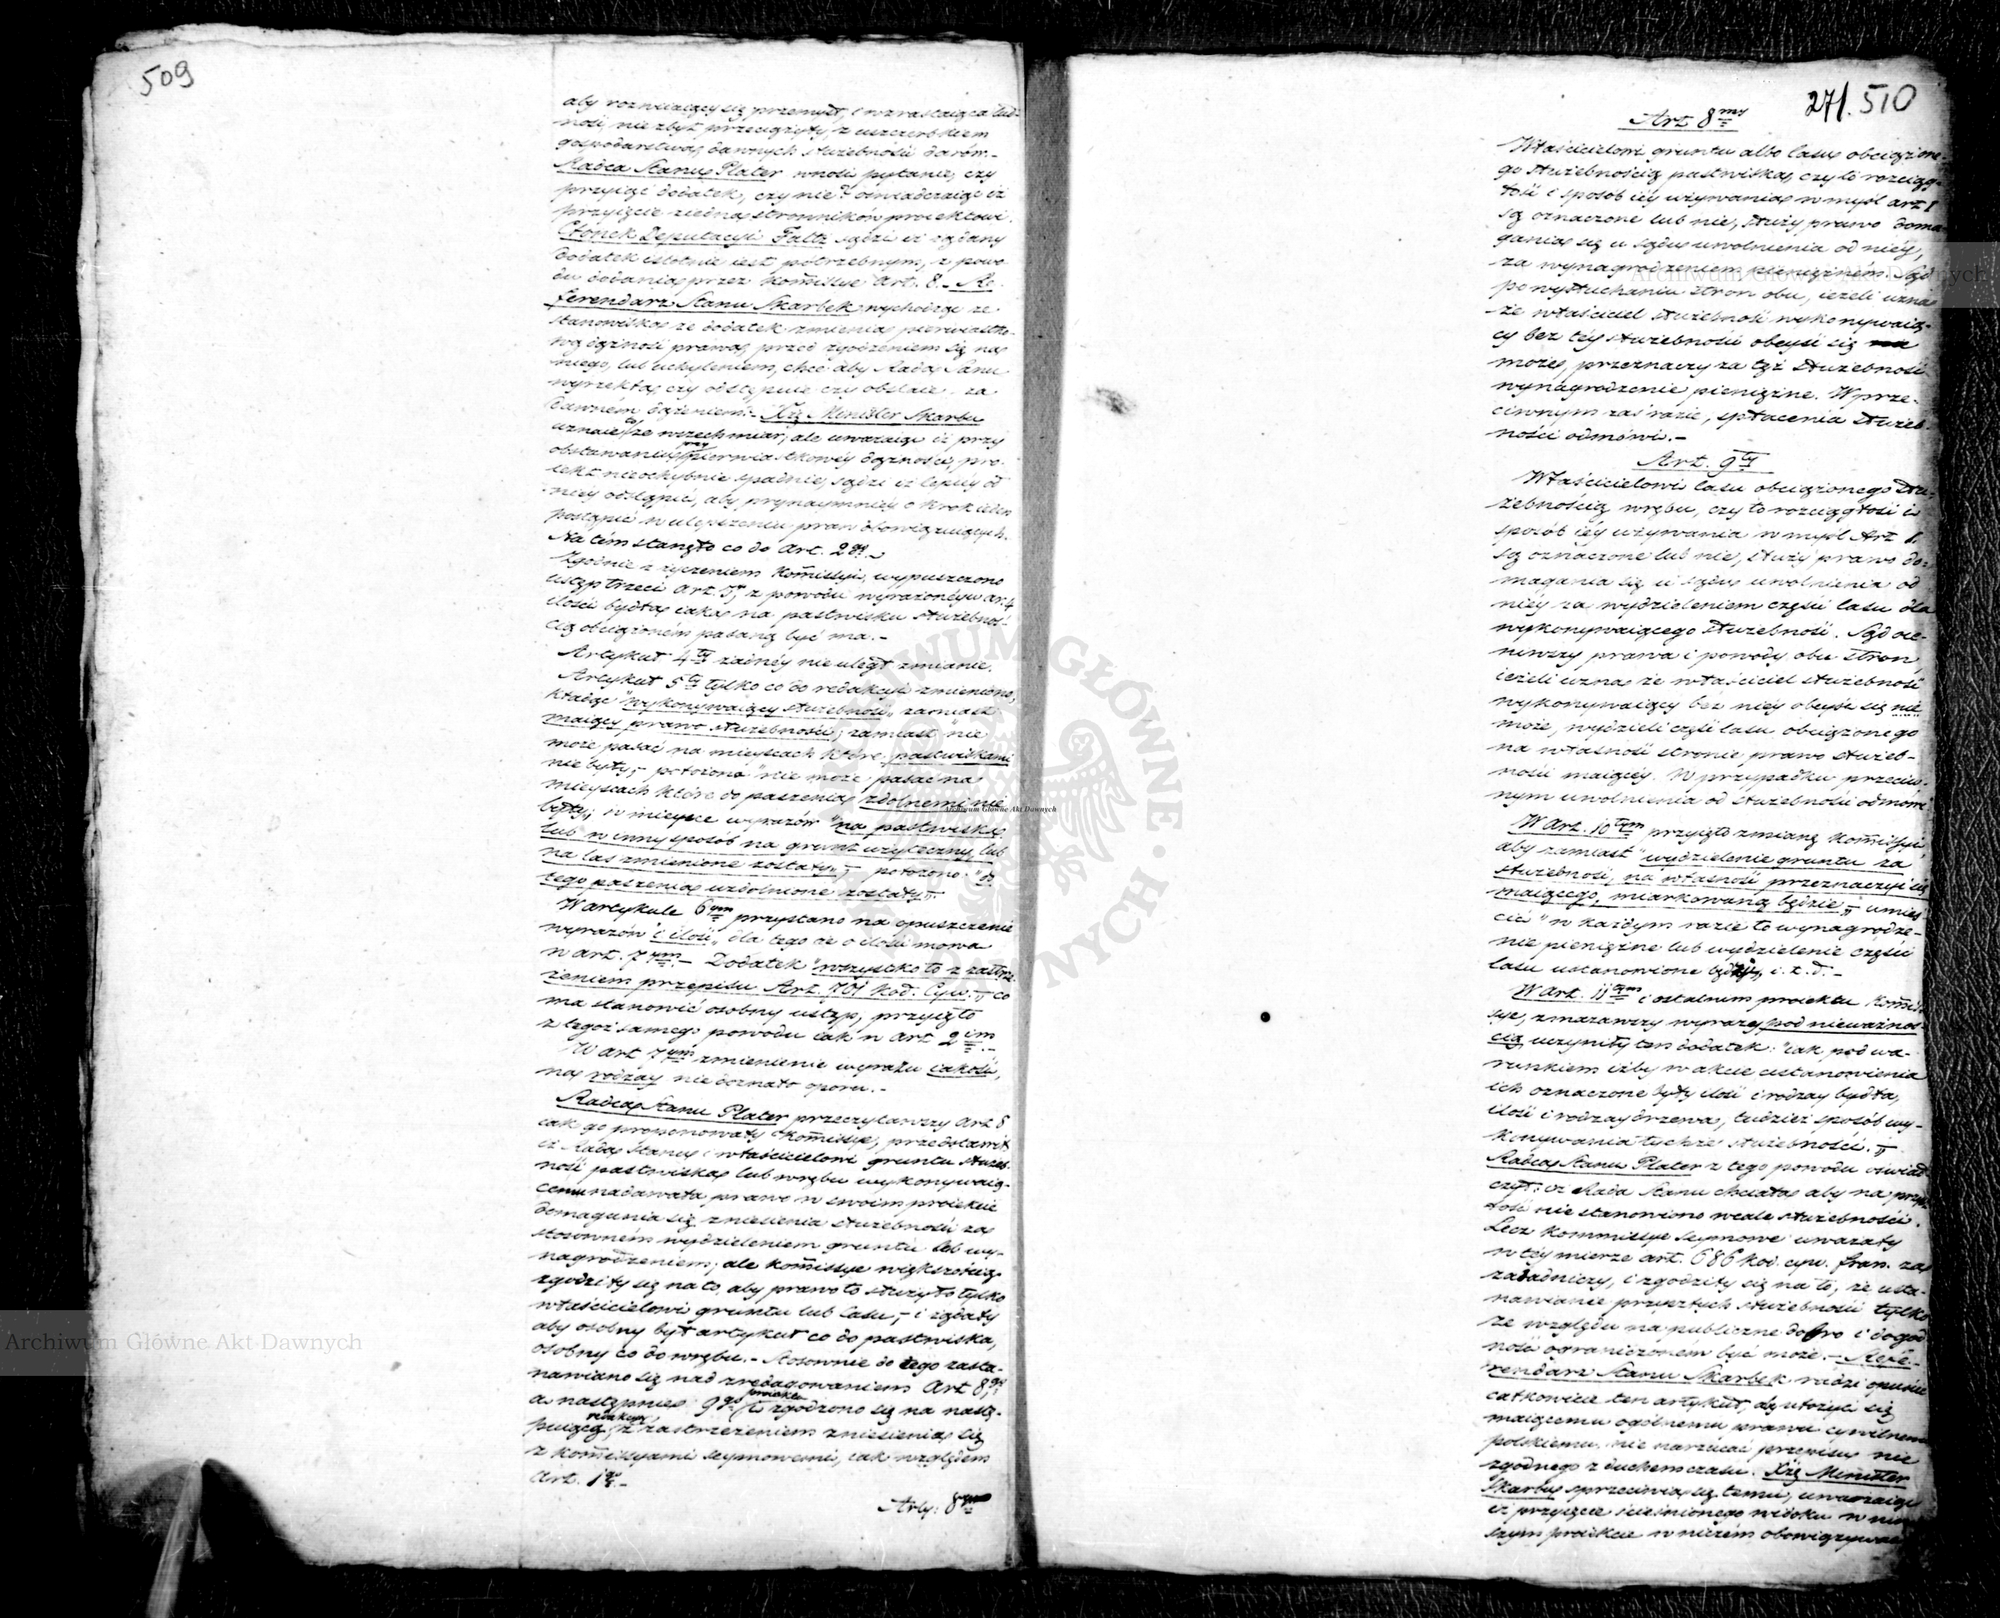 509
aby rozwiiaiący się przemysł, i wzrastaiąca lud-
ność, nie zbyt przeciążyły, z uszczerbkiem
gospodarstwa, dawnych służebności darów.-
Radca Stanu Plater wnosi pytanie, czy
przyiąć dodatek, czy nie? oświadczaiąc iż
przyięcie ziedna stronników proiektowi.
Członek Deputacyi Faltz sądzi iż żądany
dodatek istotnie iest potrzebnym, z powo
du dodania przez Kom̄issye Art. 8.- Re-
ferendarz Stanu Skarbek wychodząc ze
stanowiska że dodatek zmienia pierwiastko-
wą dążność prawa, przed zgodzeniem się na
niego, lub uchyleniem, chce aby Rada Stanu
wyrzekła, czy odstępuie czy obstaie za
dawném dążeniem.- Xżę Minister Skarbu
uznaie to ze wszech miar, ale uważaiąc iż przy
obstawaniu przy pierwiastkowéy dążności, pro-
iekt nieochybnie spadnie, sądzi iż lepiéy od
niéy odstąpić, aby przynaymniéy o krok ieden
postąpić w ulepszeniu praw obowiązuiących.
Na tém stanęło co do Art. 2go.-
Zgodnie z życzeniem Kom̄issyi, wypuszczono
ustęp trzeci Art. 3go, z powodu wyrażonéy w ar. 4
ilości bydła, iaka na pastwisku służebnoś-
cią obciążoném pasaną być ma.-
Artykuł 4ty żadnéy nie uległ zmianie.
Artykuł 5ty tylko co do redakcyi zmieniono,
kładąc "wykonywaiący służebność„ zamiast
maiący prawo służebności; zamiast "nie
może pasać na mieyscach które pastwiskami
nie były,- położono "nie może pasać na
mieyscach które do paszenia zdolnemi nie
były,; i w mieysce wyrazów "na pastwiska
lub w inny sposób na grunt użyteczny, lub
na las zmienione zostały„- położono: "do
tego paszenia uzdolnione zostały„.
W artykule 6ym przystano na opuszczenie
wyrazów "i ilość„ dla tego że o ilości mowa
w art. 7ym.- Dodatek "wszystko to z zastrze-
żeniem przepisu Art. 701 Kod. Cyw.„ co
ma stanowić osobny ustęp, przyięto
z tegoż samego powodu iak w Art 2im.-
W Art 7ym zmienienie wyrazu iakość,
na rodzay nie doznało oporu.-
Radca Stanu Plater przeczytawszy Art 8
iak go proponowały Kom̄issye, przedstawił
iż Rada Stanu i właścicielowi gruntu służeb-
ność pastwiska lub wrębu wykonywaią-
cemu nadawała prawo w swoim proiekcie
domagania się zniesienia służebności za
stosowném wydzieleniem gruntu lub wy-
nagrodzeniem; ale Kom̄issye większością
zgodziły się na to, aby prawo to służyło tylko
właścicielowi gruntu lub lasu,- i żądały
aby osobny był artykuł co do pastwiska,
osobny co do wrębu.- Stosownie do tego zasta-
nawiano się nad zredagowaniem Art 8go
a następnie 9go proiektu i zgodzono się na nastę-
puiącą redakcyą, z zastrzeżeniem zniesienia się
z Kom̄issyami seymowemi, iak względem
Art. 1go.-
Arty: 8my
271. 510
Art 8my
Właścicielowi gruntu albo lasu obciążone-
go służebnością pastwiska, czy to rozciąg-
łość i sposób iéy używania w myśl art 1
są oznaczone lub nie, służy prawo doma-
gania się u sądu uwolnienia od niéy,
za wynagrodzeniem pieniężném. Sąd
po wysłuchaniu stron obu, ieżeli uzna
że właściciel służebność wykonywaią-
cy bez téy służebności obeyść się
może, przeznaczy za tęż służebność
wynagrodzenie pieniężne. W prze-
ciwnym zaś razie, spłacenia służeb-
ności odmówi.-
Art. 9ty
Właścicielowi lasu obciążonego słu-
żebnością wrębu, czy to rozciągłość i
sposób iéy używania w myśl Art 1.
są oznaczone lub nie, służy prawo do-
magania się u sądu uwolnienia od
niéy za wydzieleniem części lasu dla
wykonywaiącego służebność. Sąd oce-
niwszy prawa i powody obu stron,
ieżeli uzna że właściciel służebność
wykonywaiący bez niéy obeyść się nie
może, wydzieli część lasu obciążonego
na własność stronie prawo służeb-
ności maiącéy. W przypadku przeciw-
nym uwolnienia od służebności odmówi
W Art. 10tym przyięto zmianę Kom̄issyi
aby zamiast "wydzielenie gruntu za
służebność, na własność przeznaczyć się
maiącego, miarkowaną będzie„ umieś-
cić "w każdym razie to wynagrodze-
nie pieniężne lub wydzielenie części
lasu ustanowione będzie, i. t. d.-
W Art. 11tym i ostatnim proiektu Kom̄is-
sye, zmazawszy wyrazy pod nieważnoś-
cią uczyniły ten dodatek: "iak pod wa-
runkiem iżby w akcie ustanowienia
ich oznaczone były ilość i rodzay bydła,
ilość i rodzay drzewa, tudzież sposób wy-
konywania tychże służebności.„
Radca Stanu Plater z tego powodu oświad
czył: iż Rada Stanu chciała aby na przysz-
łość nie stanowiono wcale służebności.
Lecz Kommissye seymowe uważały
w téy mierze art. 686 kod. cyw. fran. za
zasadniczy, i zgodziły się na to, że usta-
nawianie przyszłych służebności tylko
ze względu na publiczne dobro i dogod
ność ograniczoném być może.- Refe-
rendarz Stanu Skarbek radzi opuścić
całkowicie ten artykuł, aby ułożyć się
maiącemu ogólnemu prawu cywilnemu
polskiemu, nie narzucać przepisu nie
zgodnego z duchem czasu. Xżę Minister
Skarbu sprzeciwia się temu, uważaiąc
iż przyięcie ścieśnionego widoku w niniey-
szym proiekcie w niczém obowiązywać